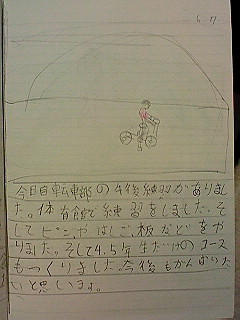 6 7
今日自転車部の午後練習がありまし
た。体育館で練習をしました。そ
してピンやはしご、板などをや
りました。そして4.5年生だけのコース
もつくりました。今後もがんばりた
いと思います。